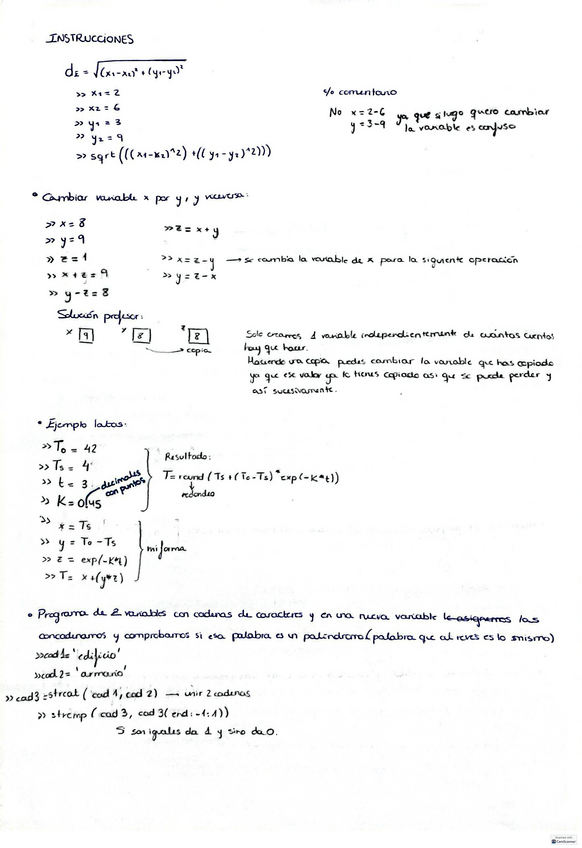 INSTRUCCIONES
dE = √(x1-x2)² + (y1-y2)²
>> x1 = 2
>> x2 = 6
>> y1 = 3
>> y2 = 9
>> sqrt (((x1-x2)^2) + ((y1-y2)^2)))
% comentario
No x = 2-6 ya que si luego quiero cambiar
y = 3-9 la variable es confuso
• Cambiar variable x por y, y viceversa:
>> x = 8
>> y = 9
>> z = 1
>> x + z = 9
>> y - z = 8
>> z = x + y
>> x = z - y → se cambia la variable de x para la siguiente operación
>> y = z - x
Solución profesor:
x 9 y 8 z 8
copia
Solo creamos 1 variable independientemente de cuántos cuentos
hay que hacer.
Haciendo una copia puedes cambiar la variable que has copiado
ya que ese valor ya lo tienes copiado asi que se puede perder y
así sucesivamente.
• Ejemplo latas:
>> To = 42
>> Ts = 4
>> t = 3
>> K = 0.45
decimales con puntos
Resultado:
T = round (Ts + (To - Ts) * exp (-K*t))
redondeo
>> x = Ts
>> y = To - Ts
>> z = exp(-K*t)
>> T = x + (y*z)
mi forma
• Programa de 2 variables con cadenas de caracteres y en una nueva variable le asignemos las
concadenamos y comprobamos si esa palabra es un palíndromo (palabra que al revés es lo mismo)
>> cad1 = 'edificio'
>> cad2 = 'armario'
>> cad3 = strcat (cad 1, cad 2) → unir 2 cadenas
>> strcmp (cad 3, cad 3 (end : -1 : 1))
Si son iguales da 1 y sino da 0.
CamScanner